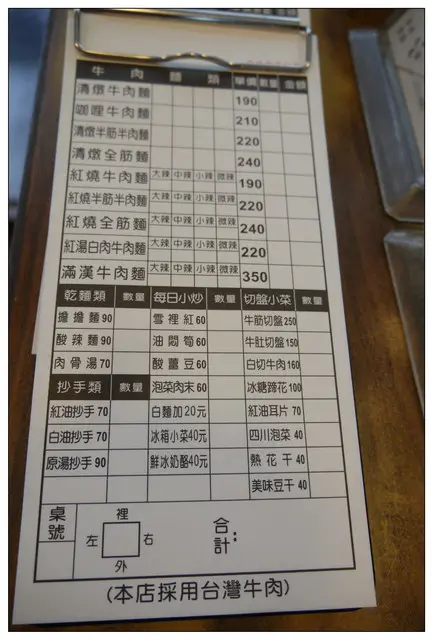 牛肉麵類 單價 數量 金額
清燉牛肉麵 190
咖哩牛肉麵 210
清燉半筋半肉麵 220
清燉全筋麵 240
紅燒牛肉麵 大辣 中辣 小辣 微辣 190
紅燒半筋半肉麵 大辣 中辣 小辣 微辣 220
紅燒全筋麵 大辣 中辣 小辣 微辣 240
紅湯白肉牛肉麵 大辣 中辣 小辣 微辣 220
滿漢牛肉麵 大辣 中辣 小辣 微辣 350
乾麵類 數量 每日小炒 數量 切盤小菜 數量
擔擔麵90 雪裡紅60 牛筋切盤250
酸辣麵90 油悶筍60 牛肚切盤150
肉骨湯70 酸薑豆60 白切牛肉160
抄手類 數量 泡菜肉末60 冰糖蹄花100
紅油抄手70 白麵加20元 紅油耳片70
白油抄手70 冰箱小菜40元 四川泡菜40
原湯抄手90 鮮冰奶酪40元 熱花干40
美味豆干40
桌號 裡 左 右 外 合計:
(本店採用台灣牛肉)